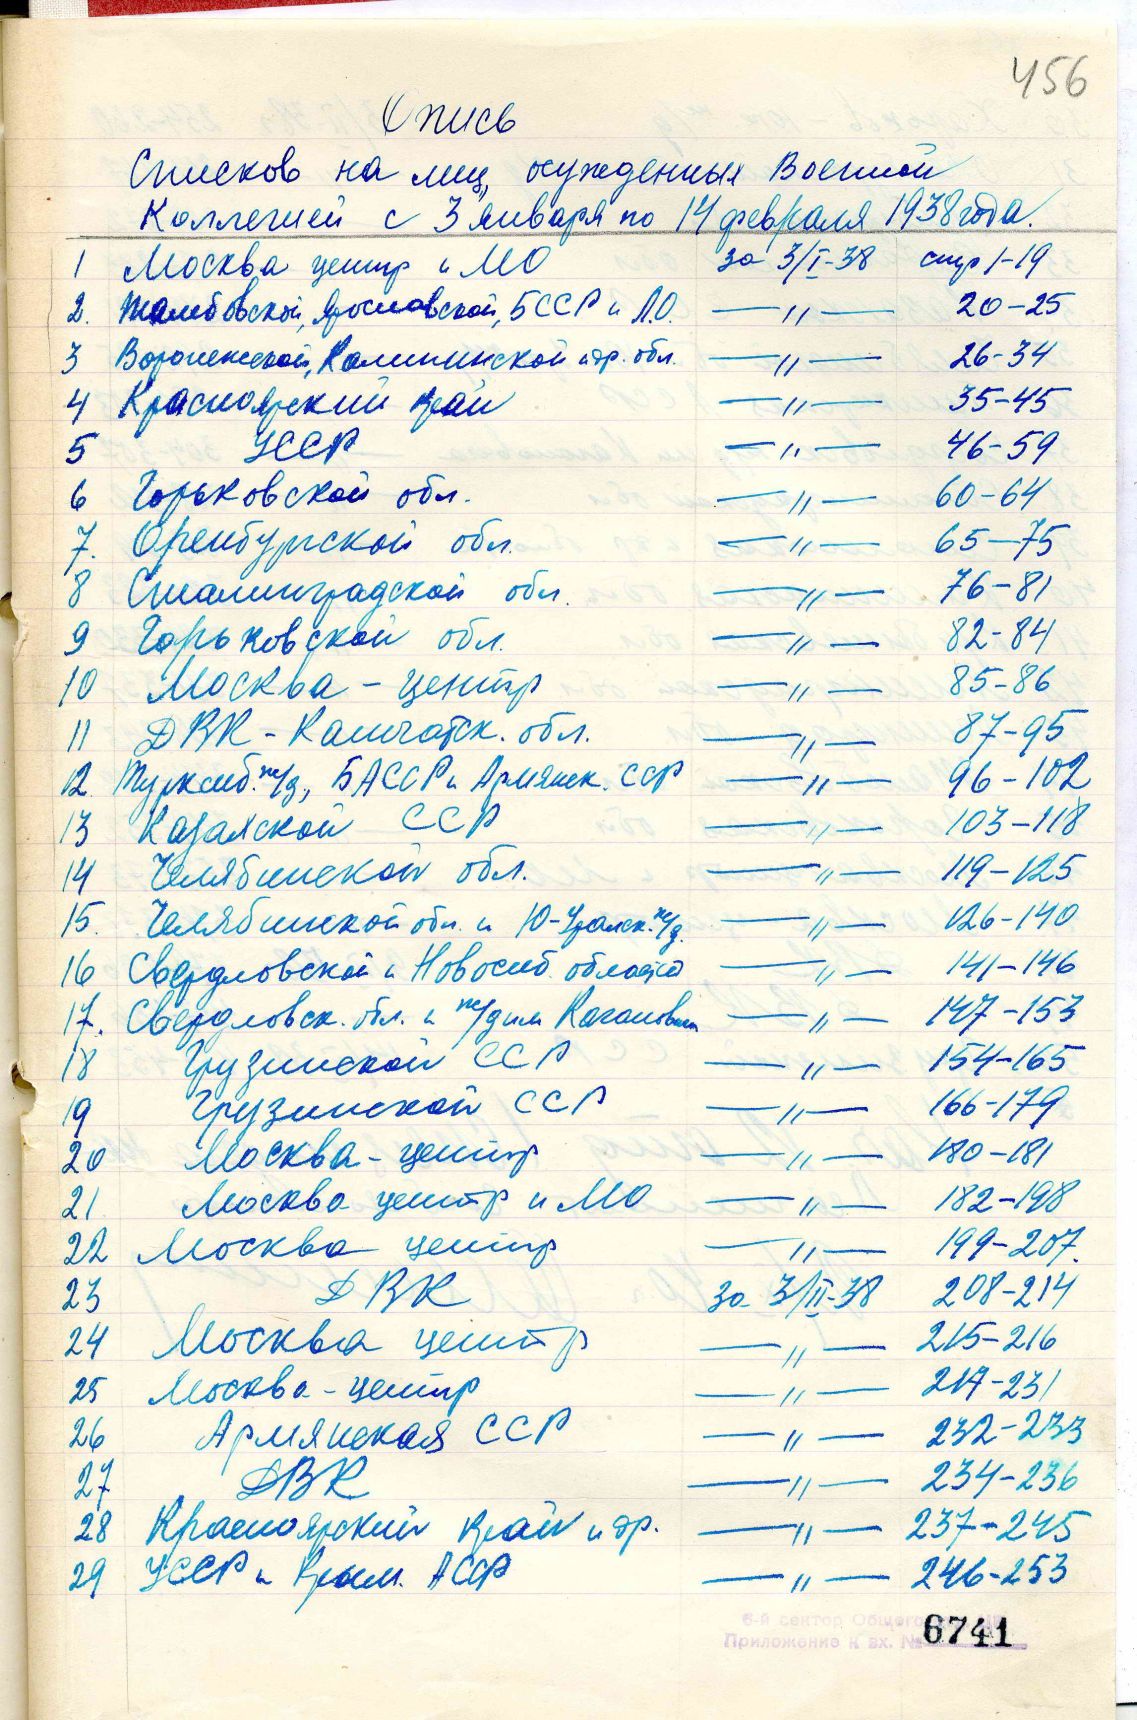 456
Опись
Списков на лиц, осужденных Военной
Коллегией с 3 января по 14 февраля 1938 года.
1 Москва центр и МО за 3/I-38 стр 1-19
2. Тамбовской, Ярославской, БССР и Л.О. —〃— 20-25
3 Воронежской, Калининской и др. обл. —〃— 26-34
4 Красноярский край —〃— 35-45
5 УССР —〃— 46-59
6 Горьковской обл. —〃— 60-64
7. Оренбургской обл. —〃— 65-75
8 Сталинградской обл. —〃— 76-81
9 Горьковской обл. —〃— 82-84
10 Москва - центр —〃— 85-86
11 ДВК - Камчатск. обл. —〃— 87-95
12. Турксиб. ж/д, БАССР и Армянск. ССР —〃— 96-102
13 Казахской ССР —〃— 103-118
14 Челябинской обл. —〃— 119-125
15. Челябинской обл. и Ю-Уральск. ж/д. —〃— 126-140
16 Свердловской и Новосиб. областей —〃— 141-146
17. Свердловск. обл. и ж/д им Кагановича —〃— 147-153
18 Грузинской ССР —〃— 154-165
19 Грузинской ССР —〃— 166-179
20 Москва - центр —〃— 180-181
21. Москва центр и МО —〃— 182-198
22 Москва центр —〃— 199-207.
23 ДВК за 3/II-38 208-214
24 Москва центр —〃— 215-216
25 Москва - центр —〃— 217-231
26 Армянская ССР —〃— 232-233
27 ДВК —〃— 234-236
28 Красноярский край и др. —〃— 237-245
29 УССР и Крым. АССР —〃— 246-253
6-й сектор Общего
Приложение к вх. № 6741